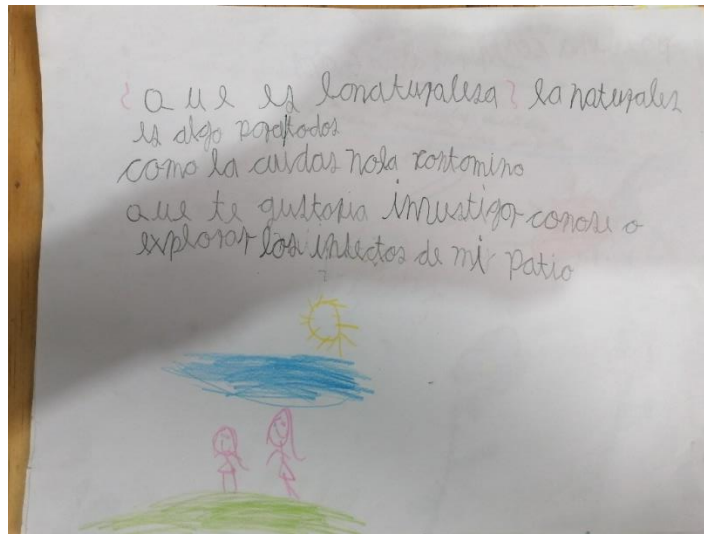 ¿ a u e es lonaturalesa ? la naturalez
es algo poraftodos
como la cuidas nola contomino
a u e te gustoria invustigor conose o
explorar los insectos de mi patio